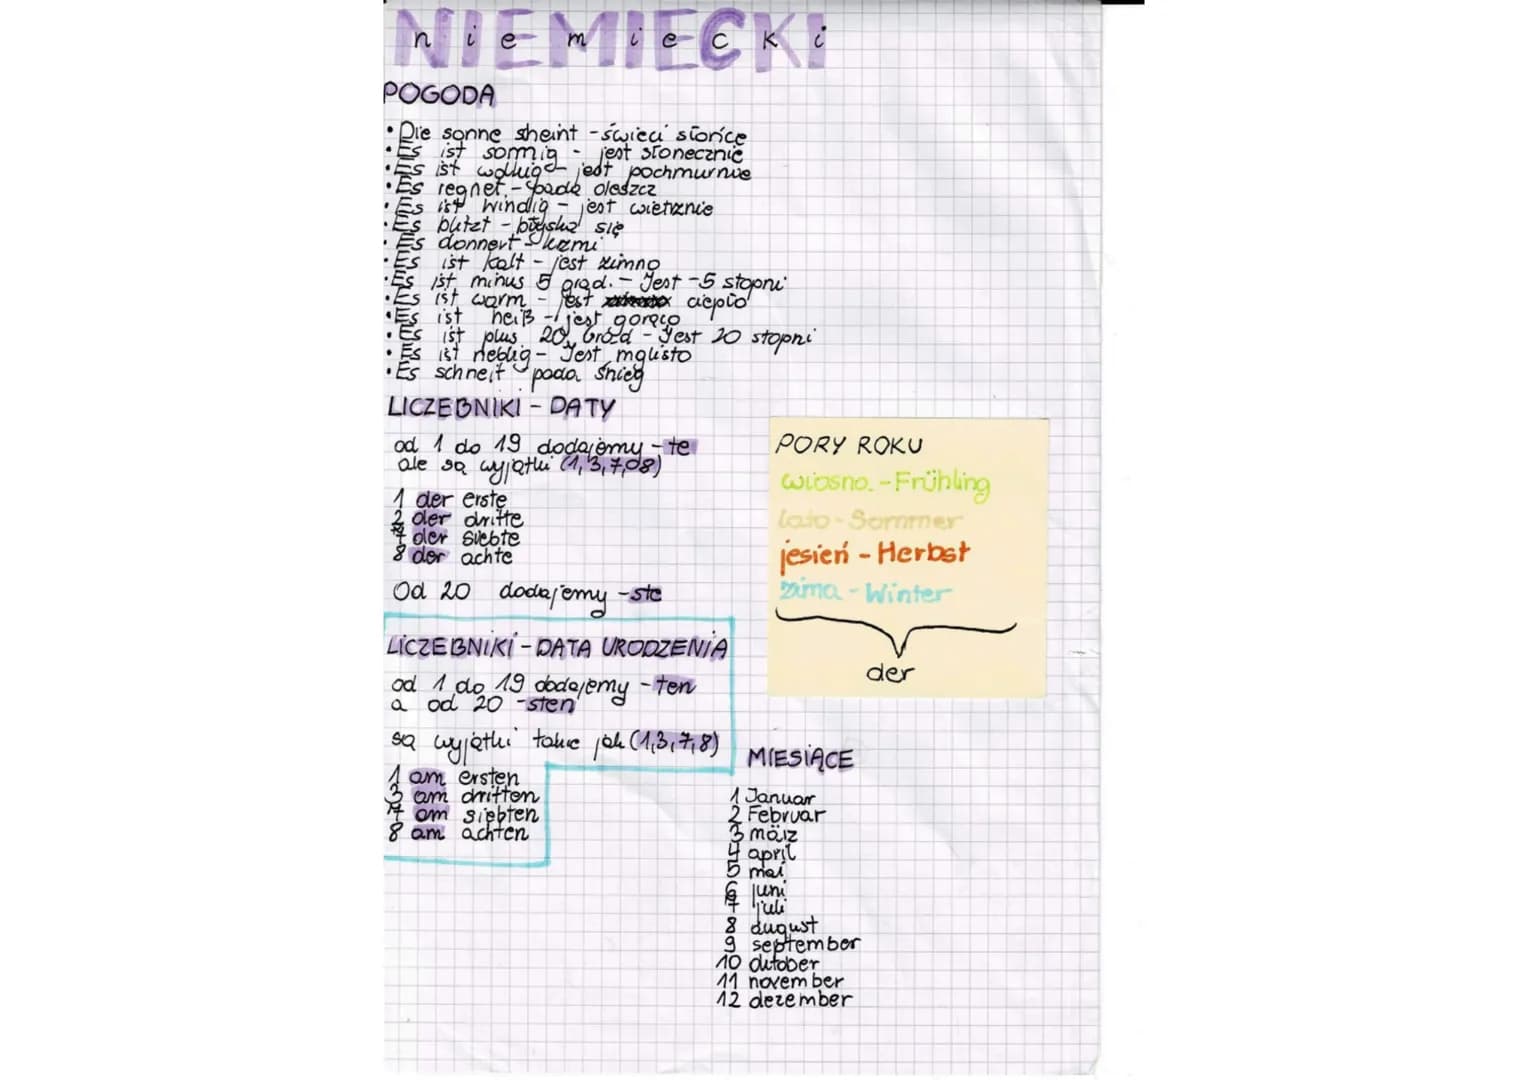 NIEMIECKI
niemiecki
POGODA
• Die sonne sheint - świeci słońce
• Es ist sonnig - jest słonecznie
• Es ist wolkig - jest pochmurnie
• Es regnet - pada deszcz
• Es ist windig - jest wietrznie
• Es blitzt - błyska się
• Es donnert - grzmi
• Es ist kalt - jest zimno
• Es ist minus 5 grad. - Jest -5 stopni
• Es ist warm - jest ciepło
• Es ist heiß - jest gorąco
• Es ist plus 20 Grad - Jest 20 stopni
• Es ist neblig - Jest mglisto
• Es schneit - pada śnieg
LICZEBNIKI - DATY
od 1 do 19 dodajemy - te
ale są wyjątki (1,3,7,8)
1 der erste
3 der dritte
7 der siebte
8 der achte
Od 20 dodajemy - ste
LICZEBNIKI - DATA URODZENIA
od 1 do 19 dodajemy - ten
a od 20 - sten
są wyjątki takie jak (1,3,7,8)
1 am ersten
3 am dritten
7 am siebten
8 am achten
PORY ROKU
wiosna - Frühling
lato - Sommer
jesień - Herbst
zima - Winter
der
MIESIĄCE
1 Januar
2 Februar
3 märz
4 april
5 mai
6 juni
7 juli
8 august
9 september
10 oktober
11 november
12 dezember